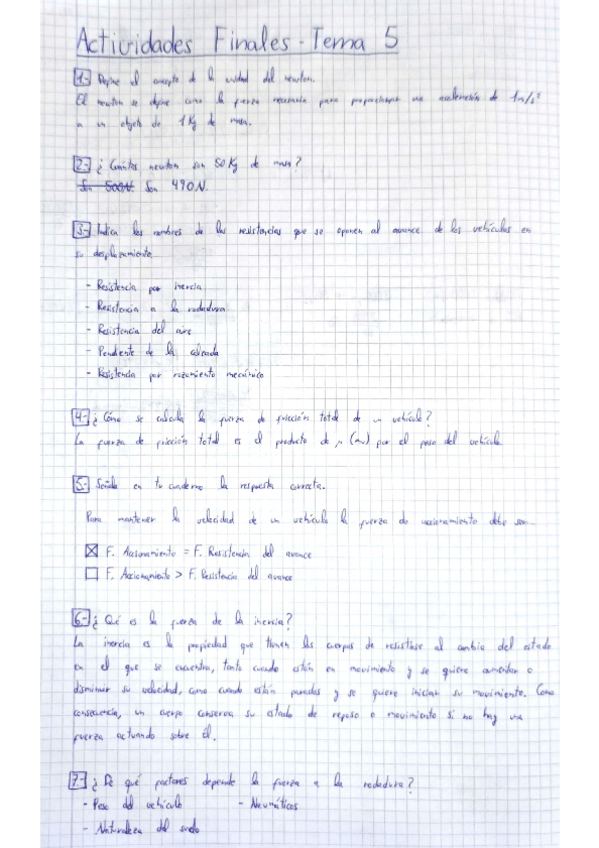 Actividades Finales - Tema 5
1- Define el concepto de la unidad del newton.
El newton se define como la fuerza necesaria para proporcionar una aceleración de 1m/s²
a un objeto de 1 Kg de masa.
2- ¿Cuántos newton son 50 Kg de masa?
Son 500N. Son 490N.
3- Indica los nombres de las resistencias que se oponen al avance de los vehículos en
su desplazamiento.
- Resistencia por inercia
- Resistencia a la rodadura
- Resistencia del aire
- Pendiente de la calzada
- Resistencia por rozamiento mecánico
4- ¿Cómo se calcula la fuerza de fricción total de un vehículo?
La fuerza de fricción total es el producto de μ (mu) por el peso del vehículo
5- Señala en tu cuaderno la respuesta correcta.
Para mantener la velocidad de un vehículo la fuerza de accionamiento debe ser...
☒ F. Accionamiento = F. Resistencia del avance
☐ F. Accionamiento > F. Resistencia del avance
6- ¿Qué es la fuerza de la inercia?
La inercia es la propiedad que tienen los cuerpos de resistirse al cambio del estado
en el que se encuentra, tanto cuando están en movimiento y se quiere aumentar o
disminuir su velocidad, como cuando están parados y se quiere iniciar su movimiento. Como
consecuencia, un cuerpo conserva su estado de reposo o movimiento si no hay una
fuerza actuando sobre él.
7- ¿De qué factores depende la fuerza a la rodadura?
- Peso del vehículo - Neumáticos
- Naturaleza del suelo